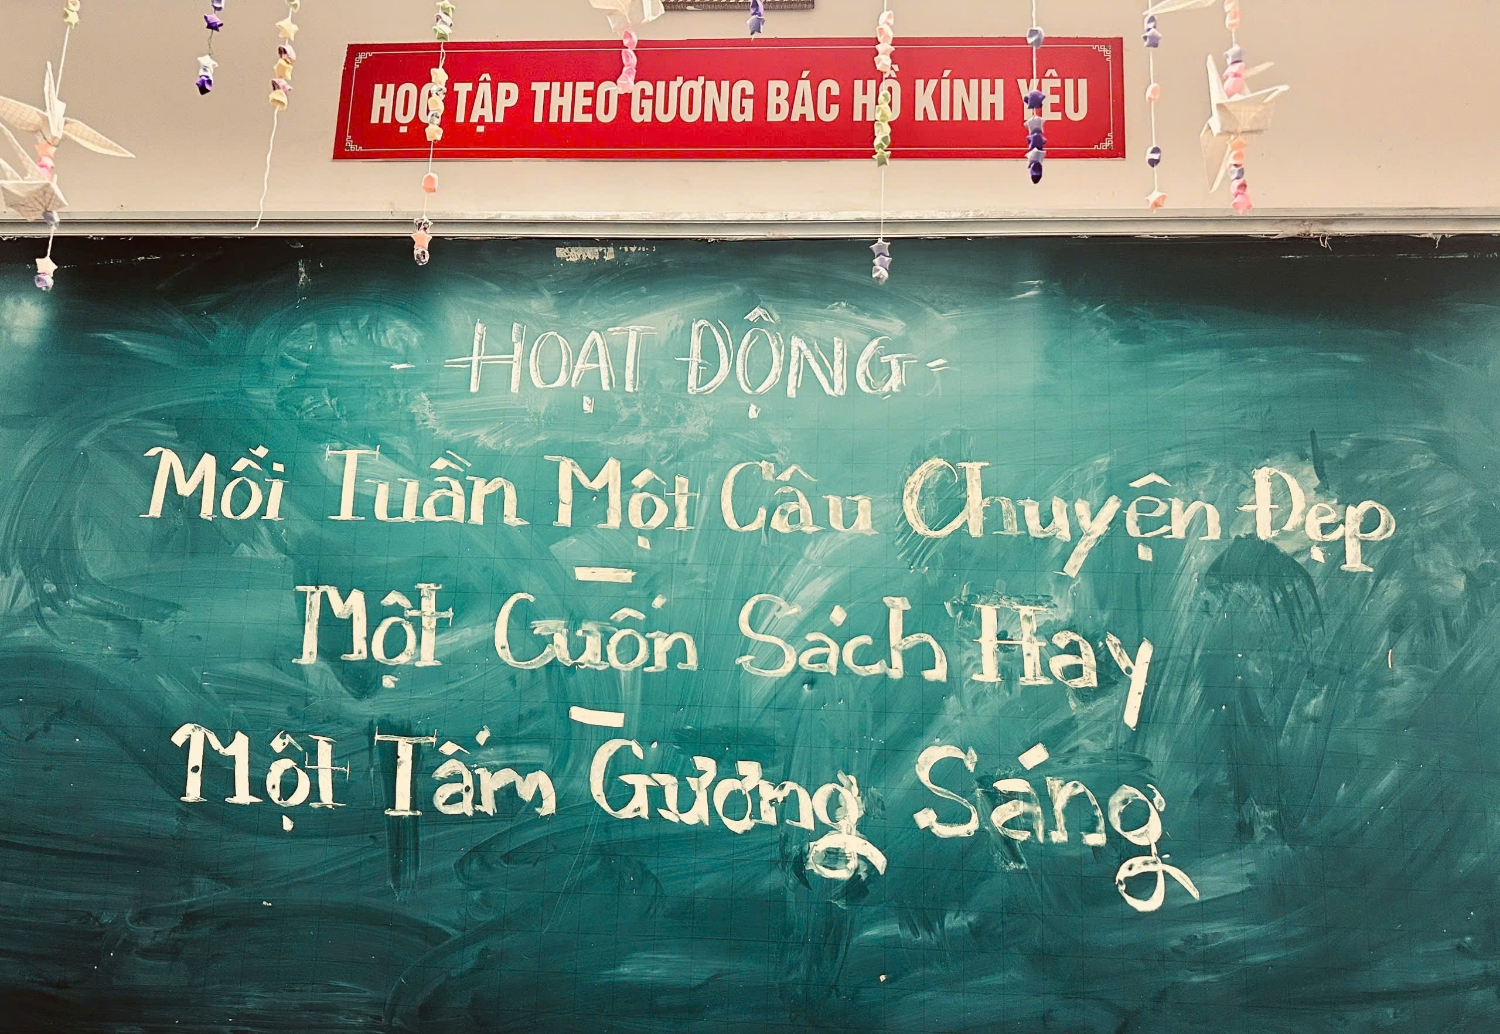 HỌC TẬP THEO GƯƠNG BÁC HỒ KÍNH YÊU
- HOẠT ĐỘNG -
Mỗi Tuần Một Câu Chuyện Đẹp
-
Một Cuốn Sách Hay
-
Một Tấm Gương Sáng